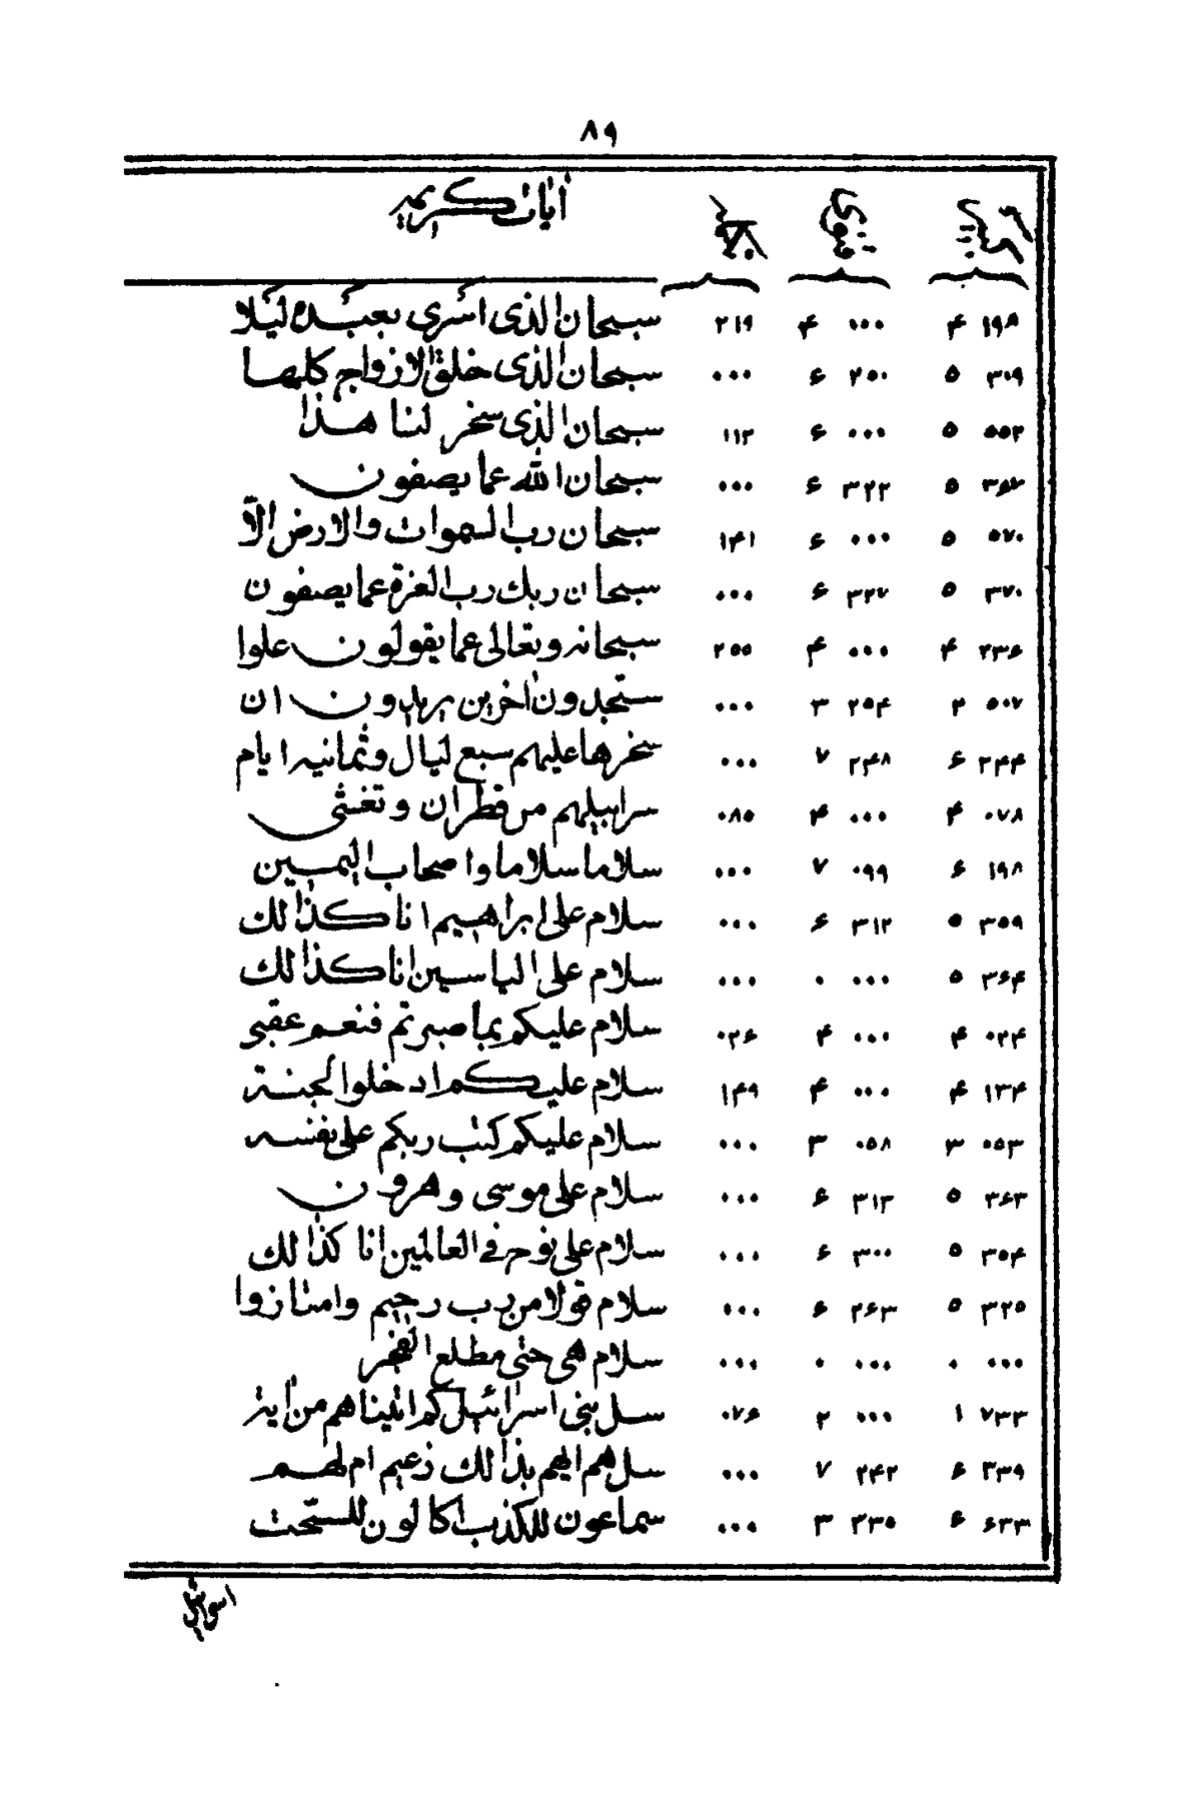 ۸۹
ایات کریمه
۱۹۸ ۴ ۰۰۰ ۴ ۲۱۹ سبحان الذی اسری بعبده لیلا
۳۰۹ ۵ ۲۵۰ ۶ ۰۰۰ سبحان الذی خلق الازواج کلها
۵۵۲ ۵ ۰۰۰ ۶ ۱۱۳ سبحان الذی سخر لنا هذا
۵ ۳۲۲ ۶ ۰۰۰ سبحان الله عما یصفون
۵۷۰ ۵ ۰۰۰ ۶ ۱۴۱ سبحان رب السموات والارض الا
۳۷۰ ۵ ۳۲۷ ۶ ۰۰۰ سبحان ربك رب العزة عما یصفون
۲۳۶ ۴ ۰۰۰ ۴ ۲۵۵ سبحانه وتعالی عما یقولون علوا
۵۰۷ ۲ ۲۵۴ ۳ ۰۰۰ ستجدون اخرین یریدون ان
۲۴۴ ۶ ۲۴۸ ۷ ۰۰۰ سخرها علیهم سبع لیال وثمانیه ایام
۰۷۸ ۴ ۰۰۰ ۴ ۰۸۵ سرابیلهم من قطران وتغشی
۱۹۸ ۶ ۰۹۹ ۷ ۰۰۰ سلاما سلاما واصحاب الیمین
۳۵۹ ۵ ۳۱۲ ۶ ۰۰۰ سلام علی ابراهیم انا کذالك
۳۶۴ ۵ ۰۰۰ ۰ ۰۰۰ سلام علی الیاسین انا کذالك
۰۲۴ ۴ ۰۰۰ ۴ ۰۲۶ سلام علیکم بما صبرتم فنعم عقبی
۱۳۴ ۴ ۰۰۰ ۴ ۱۴۹ سلام علیکم ادخلوا الجنة
۰۵۳ ۳ ۰۵۸ ۳ ۰۰۰ سلام علیکم کتب ربکم علی نفسه
۳۶۳ ۵ ۳۱۳ ۶ ۰۰۰ سلام علی موسی وهرون
۳۵۴ ۵ ۳۰۰ ۶ ۰۰۰ سلام علی نوح فی العالمین انا کذالك
۳۲۵ ۵ ۲۶۳ ۶ ۰۰۰ سلام قولا من رب رحیم وامتازوا
۰۰۰ ۰ ۰۰۰ ۰ ۰۰۰ سلام هی حتی مطلع الفجر
۷۳۳ ۱ ۰۰۰ ۲ ۰۷۶ سل بنی اسرائیل کم اتیناهم من ایة
۳۳۹ ۶ ۲۴۲ ۷ ۰۰۰ سلهم ایهم بذالك زعیم ام لهم
۶۳۳ ۶ ۲۳۵ ۳ ۰۰۰ سماعون للکذب اکالون للسحت